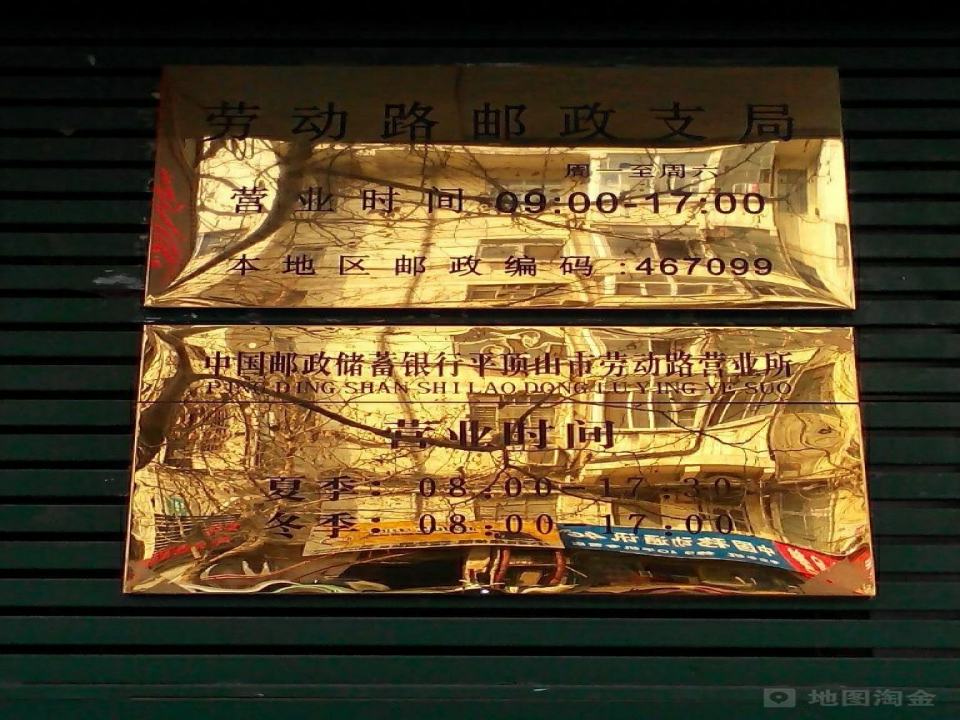 劳动路邮政支局
周一至周六
营业时间:09:00-17:00
本地区邮政编码:467099
中国邮政储蓄银行平顶山市劳动路营业所
PING DING SHAN SHI LAO DONG LU YING YE SUO
营业时间
夏季：08:00 17:30
冬季：08:00 17:00
地图淘金